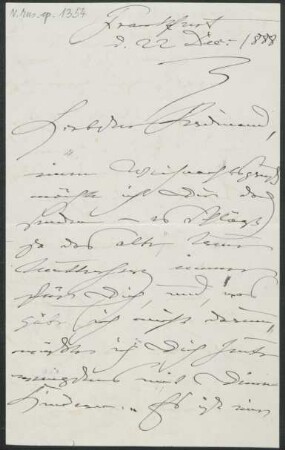 N. Mus. ep. 1357
Frankfurt
d. 22 Dec. 1888
Liebster Ferdinand,
einen Weihnachtsgruß
möchte ich Dir doch
senden – es schlägt
ja das alte, treue
immer
für Dich, und, was
gäbe ich nicht darum,
wüßte ich Dich
mit Deinen
Kindern. Es ist